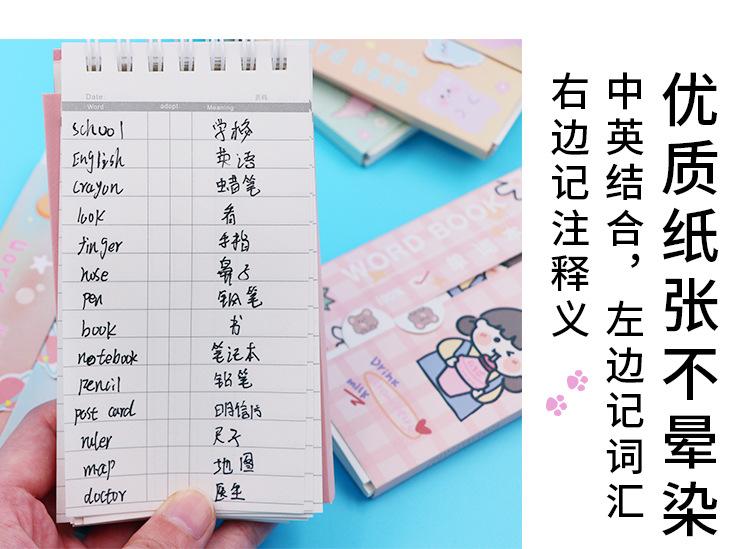 优质纸张不晕染
中英结合，左边记词汇
右边记注释义
Date: 页码
·Word adopt ·Meaning
school 学校
English 英语
crayon 蜡笔
look 看
finger 手指
nose 鼻子
pen 钢笔
book 书
notebook 笔记本
pencil 铅笔
post card 明信片
ruler 尺子
map 地图
doctor 医生
WORD BOOK
Drink
milk